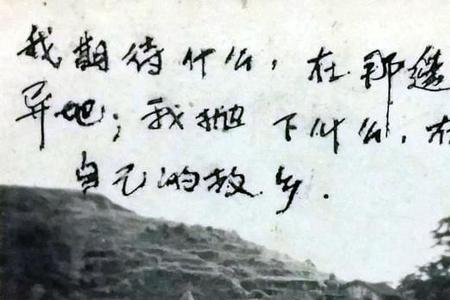 我期待什么,在那遥
异地;我抛下什么,在
自己的故乡.